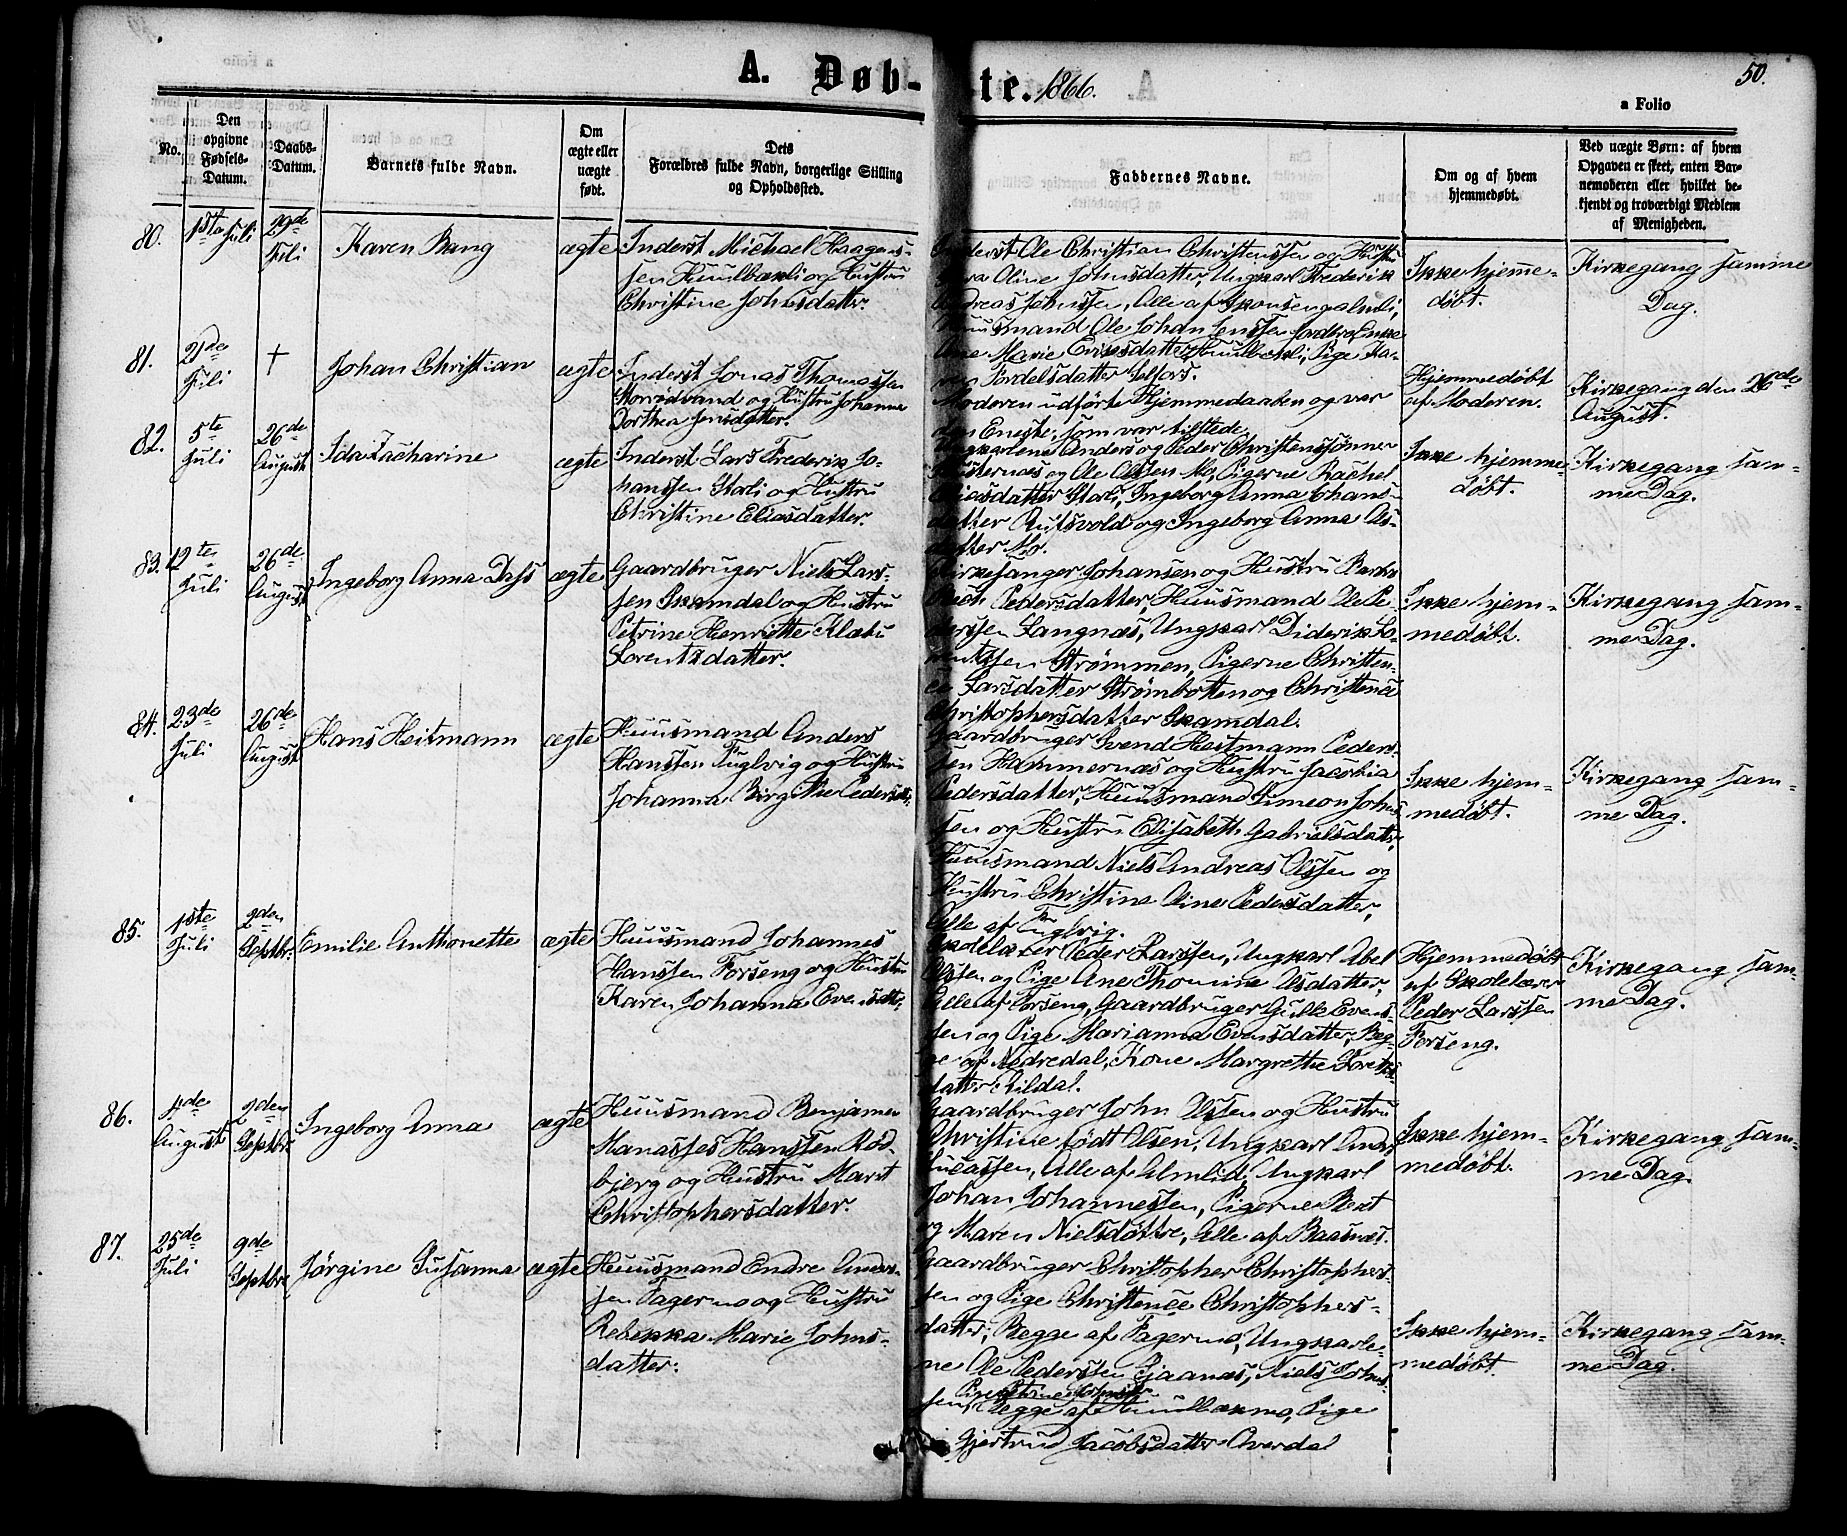 A. Døb-te. 1866.
50.
a Folio
No.
Den opgivne Fødsels-Datum.
Daabs-Datum.
Barnets fulde Navn.
Om ægte eller uægte født.
Dets Forældres fulde Navn, borgerlige Stilling og Opholdssted.
Faddernes Navne.
Om og af hvem hjemmedøbt.
Ved uægte Børn: af hvem Opgaven er skeet, enten Barnemoderen eller hvilket bekjendt og troværdigt Medlem af Menigheden.
80.
1ste Juli
29de Juli
Karen Bang
ægte
Inderst Michael Haagens-
sen Huulbækli og Hustru
Christine Johnsdatter.
Inderst Ole Christian Christenssen og Hustru
Oline Johnsdatter, Ungkarl Frederik
Andreas Johnssen, Alle af Skonsengalmli,
Huusmand Ole Johan Jenssen
Ane Marie Eriksdatter, Huulbækli, Pige Ka-
ren Pordelsdatter Selfors.
Ikke hjemme-
døbt.
Kirkegang samme
Dag.
81.
21de Juli
†
Johan Christian
ægte
Inderst Jonas Thomassen
Storvidvand og Hustru Johanna
Dorthea Jensdatter.
Moderen udførte Hjemmedaaben og var
den Eneste, som var tilstede.
Hjemmedøbt
af Moderen.
Kirkegang den 26de
August.
82.
5te Juli
26de August
Ida Zacharine
ægte
Inderst Lars Frederik Jo-
hanssen Storli og Hustru
Christine Eliasdatter.
Ungkarlene Anders og Peder Christenssønner
og Ole Olssen Mo, Pigerne Rachel
Eliasdatter Storli, Ingeborg Anna Ehans-
datter Rufsvold og Ingeborg Anna Ols-
datter Mo.
Ikke hjemme-
døbt.
Kirkegang sam-
me Dag.
83.
12te Juli
26de August
Ingeborg Anna Dass
ægte
Gaardbruger Niels Lars-
sen Skamdal og Hustru
Petrine Henriette Klæbo
Lorentzdatter.
Kirkesanger Johansen og Hustru
Pedersdatter, Huusmand Ole Pe-
derssen Langnæs, Ungkarl Diderik Lo-
rentzsen Strømmen, Pigerne Christen-
ce Larsdatter Strømbotten og Christence
Christophersdatter Skamdal.
Ikke hjem-
medøbt.
Kirkegang sam-
me Dag.
84.
23de Juli
26de August
Hans Heitmann
ægte
Huusmand Anders
Hanssen Fuglvig og Hustru
Johanna Birgitthe Pedersdtr.
Gaardbruger Svend Hestmann Peders-
sen Hammernæs og Hustru Jacobia
Pedersdatter, Huusmand Simeon Johns-
sen og Hustru Elisabeth Gabrielsdatter,
Huusmand Niels Andreas Olssen og
Hustru Christine Oline Pedersdatter,
Alle af Fuglvig.
Ikke hjem-
medøbt.
Kirkegang sam-
me Dag.
85.
1ste Juli
2den Septbr.
Emilie Anthionette
ægte
Huusmand Johannes
Hanssen Forseng og Hustru
Karen Johanna Evensdtr.
Skolelærer Peder Larssen, Ungkarl Abel
Olssen og Pige Ane Thomine Olsdatter,
Alle af Forseng, Gaardbruger Gulle Evens-
sen og Pige Marianna Evensdatter, Beg-
ge af Nedredal, Kone Margrethe
datter Lildal.
Hjemmedøbt
af Skolelærer
Peder Larssen
Forseng.
Kirkegang sam-
me Dag.
86.
4de August
2den Septbr.
Ingeborg Anna
ægte
Huusmand Benjamin
Manasses Hanssen Rød-
bjerg og Hustru Marit
Christophersdatter.
Gaardbruger John Olssen og Hustru
Christine født Olsen, Ungkarl
Lucassen, Alle af Almlid, Ungkarl
Johan Johannessen, Pigerne Beret
og Maren Nielsdøttre, Alle af Baasnæs.
Ikke hjem-
medøbt.
Kirkegang sam-
me Dag.
87.
25de Juli
9de Septbr.
Jørgine Susanna
ægte
Huusmand Endre Anders-
sen Fagermo og Hustru
Rebekka Marie Johns-
datter.
Gaardbruger Christopher Christophers-
sen og Pige Christence Christophers-
datter, Begge af Fagermo, Ungkarle-
ne Ole Pederssen Gjaanæs, Niels Johns-
sen, Begge af Huulbækmo, Pige
Gjertrud Jacobsdatter Averdal
Ikke hjem-
medøbt.
Kirkegang sam-
me Dag.